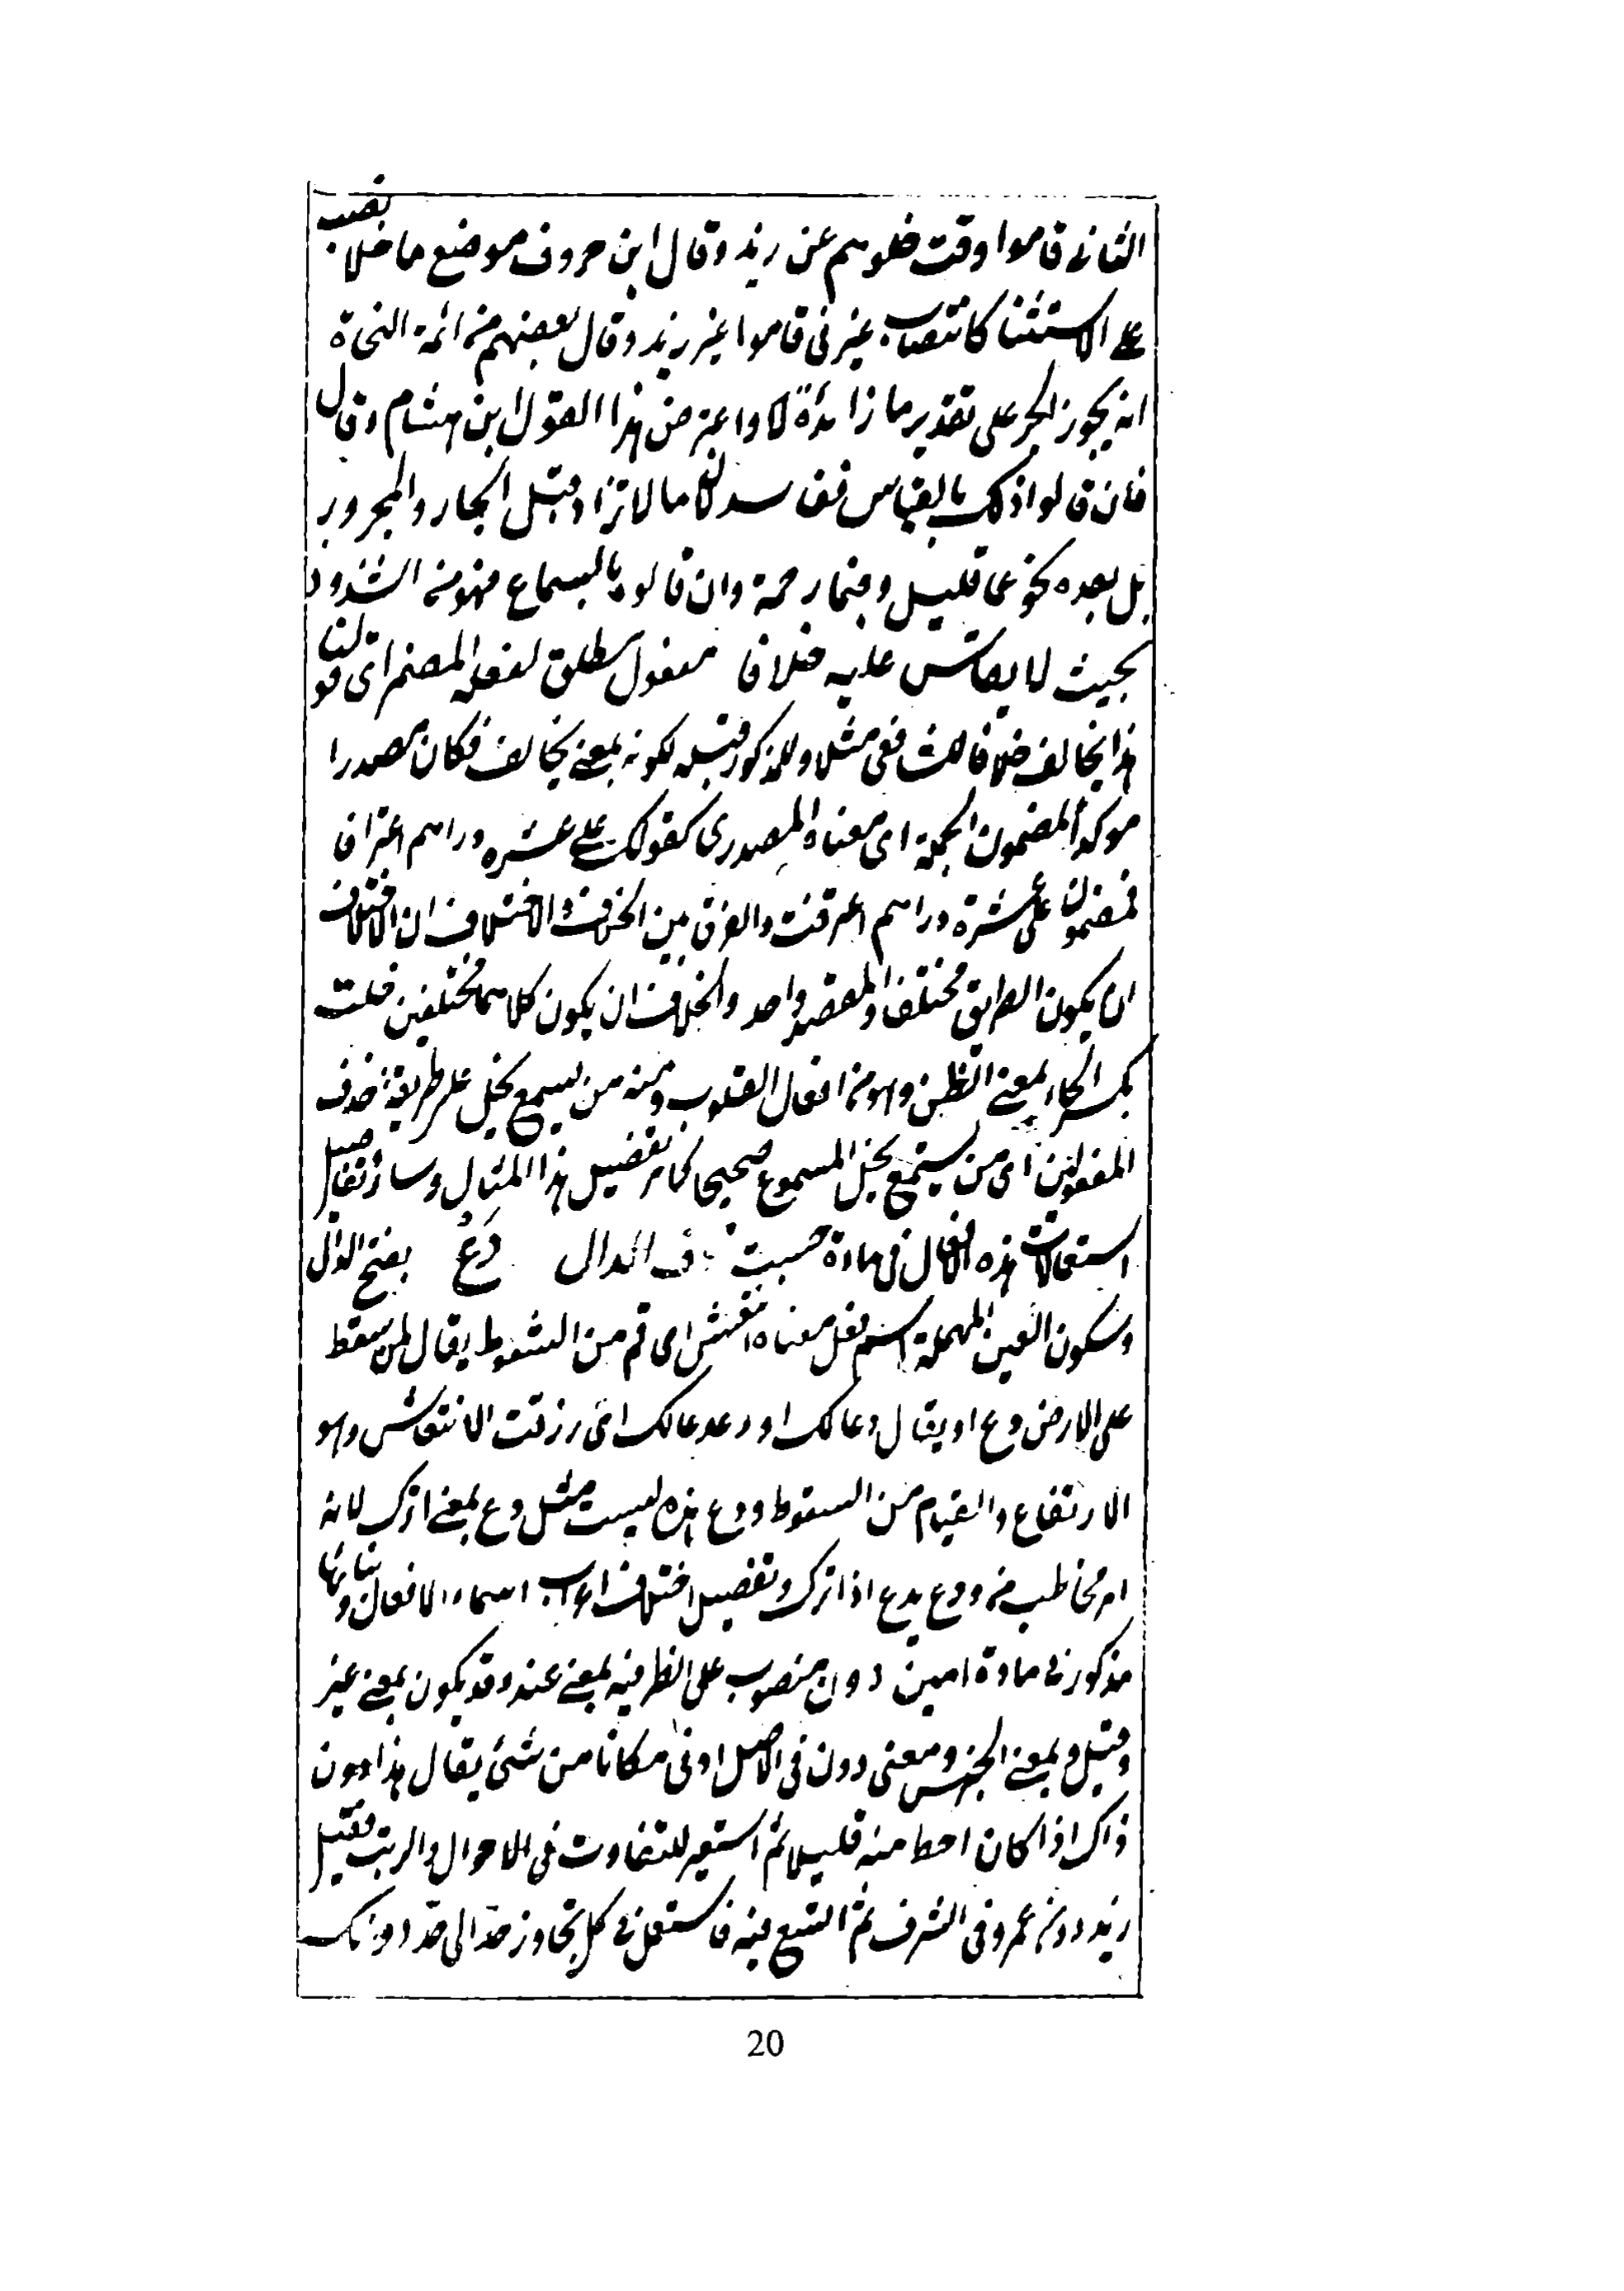 الثانى قاموا وقت خلوهم عن زيد وقال ابن خروف موضع ما خلا نصب
على الاستثنا كانتصاب غير فى قاموا غير زيد وقال بعضهم من ائمة النحاة
انه يجوز الجر على تقدير ما زائدة واعترض هذا القول ابن هشام وقال
فان قالوا ذلك بالقياس ففاسد لان ما لا تزاد قبل الجار والمجرور
بل بعده نحو عما قليل وفبما رحمة وان قالوه بالسماع فهو من الشذوذ
بحيث لا يقاس عليه خلافا مفعول مطلق لفعله المضمر اى قولنا
هذا يخالف خلافا للشافعى مثلا والمذكور قبله لكونه بمعنى يخالف فكان مصدرا
موكدا لمضمون الجملة اى معناه المصدرى كقولك على عشره دراهم اعترافا
فمضمون على عشرة دراهم اعترفت والفرق بين الخلاف والاختلاف ان الاختلاف
ان يكون الطريق مختلفا والمقصد واحد والخلاف ان يكون كلاهما مختلفين خلت
بكسر الخاء بمعنى الظن وهو من افعال القلوب ومنه من يسمع يخل على طريقة حذف
المفعولين اى من يستمع يخل المسموع صحيحا كما مر تفضيل هذا المثال وسائر تفاصيل
استعمالات هذه الافعال فى مادة حسبت ف الدال دَعْ بفتح الدال
وسكون العين المهملة اسم فعل معناه انتعش اى قم من السقوط يقال لمن سقط
على الارض دع او يقال دعا لك او دعدعا لك اى رزقت الانتعاش وهو
الارتفاع والقيام من السقوط ودع هذه ليست مثل دع بمعنى اترك لانه
امر مخاطب من ودع يدع اذا ترك وتفضيل اختلاف اعراب اسماء الافعال وبنائها
مذكور فى مادة امين دون منصوب على الظرفية بمعنى عند وقد يكون بمعنى غير
وقبل وبمعنى الخسيس ومعنى دون فى الاصل ادنى مكانا من شئ يقال هذا دون
ذاك اذا كان احط منه قليلا ثم استعير للتفاوت فى الاحوال والرتب فقيل
زيد دون عمرو فى الشرف ثم اتسع فيه فاستعمل فى كل تجاوز حد الى حد دونك
20